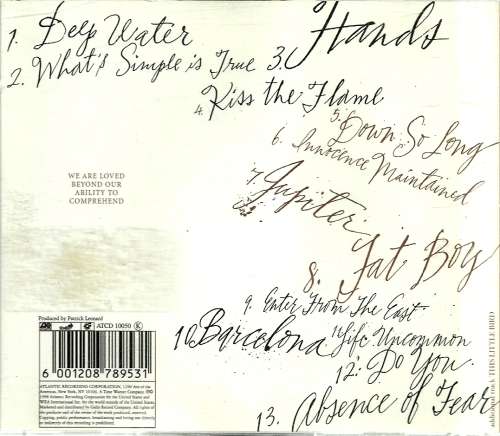 1. Deep Water
2. What's Simple is True
3. Hands
4. Kiss the Flame
5. Down So Long
6. Innocence Maintained
7. Jupiter
8. Fat Boy
9. Enter From The East
10. Barcelona
11. Life Uncommon
12. Do You
13. Absence of Fear
WE ARE LOVED
BEYOND OUR
ABILITY TO
COMPREHEND
Produced by Patrick Leonard
ATCD 10050
6 001208 789531
ATLANTIC RECORDING CORPORATION, 1290 Ave of the
Americas, New York, NY 10104. A Time Warner Company.
1998 Atlantic Recording Corporation for the United States and
WEA International Inc. for the world outside of the United States.
Marketed and distributed by Gallo Record Company. All rights of
the producer and of the owner of the work produced, reserved.
Copying, public performance, broadcasting and hiring out (directly
or indirectly) of this recording is prohibited.
THIS LITTLE BIRD